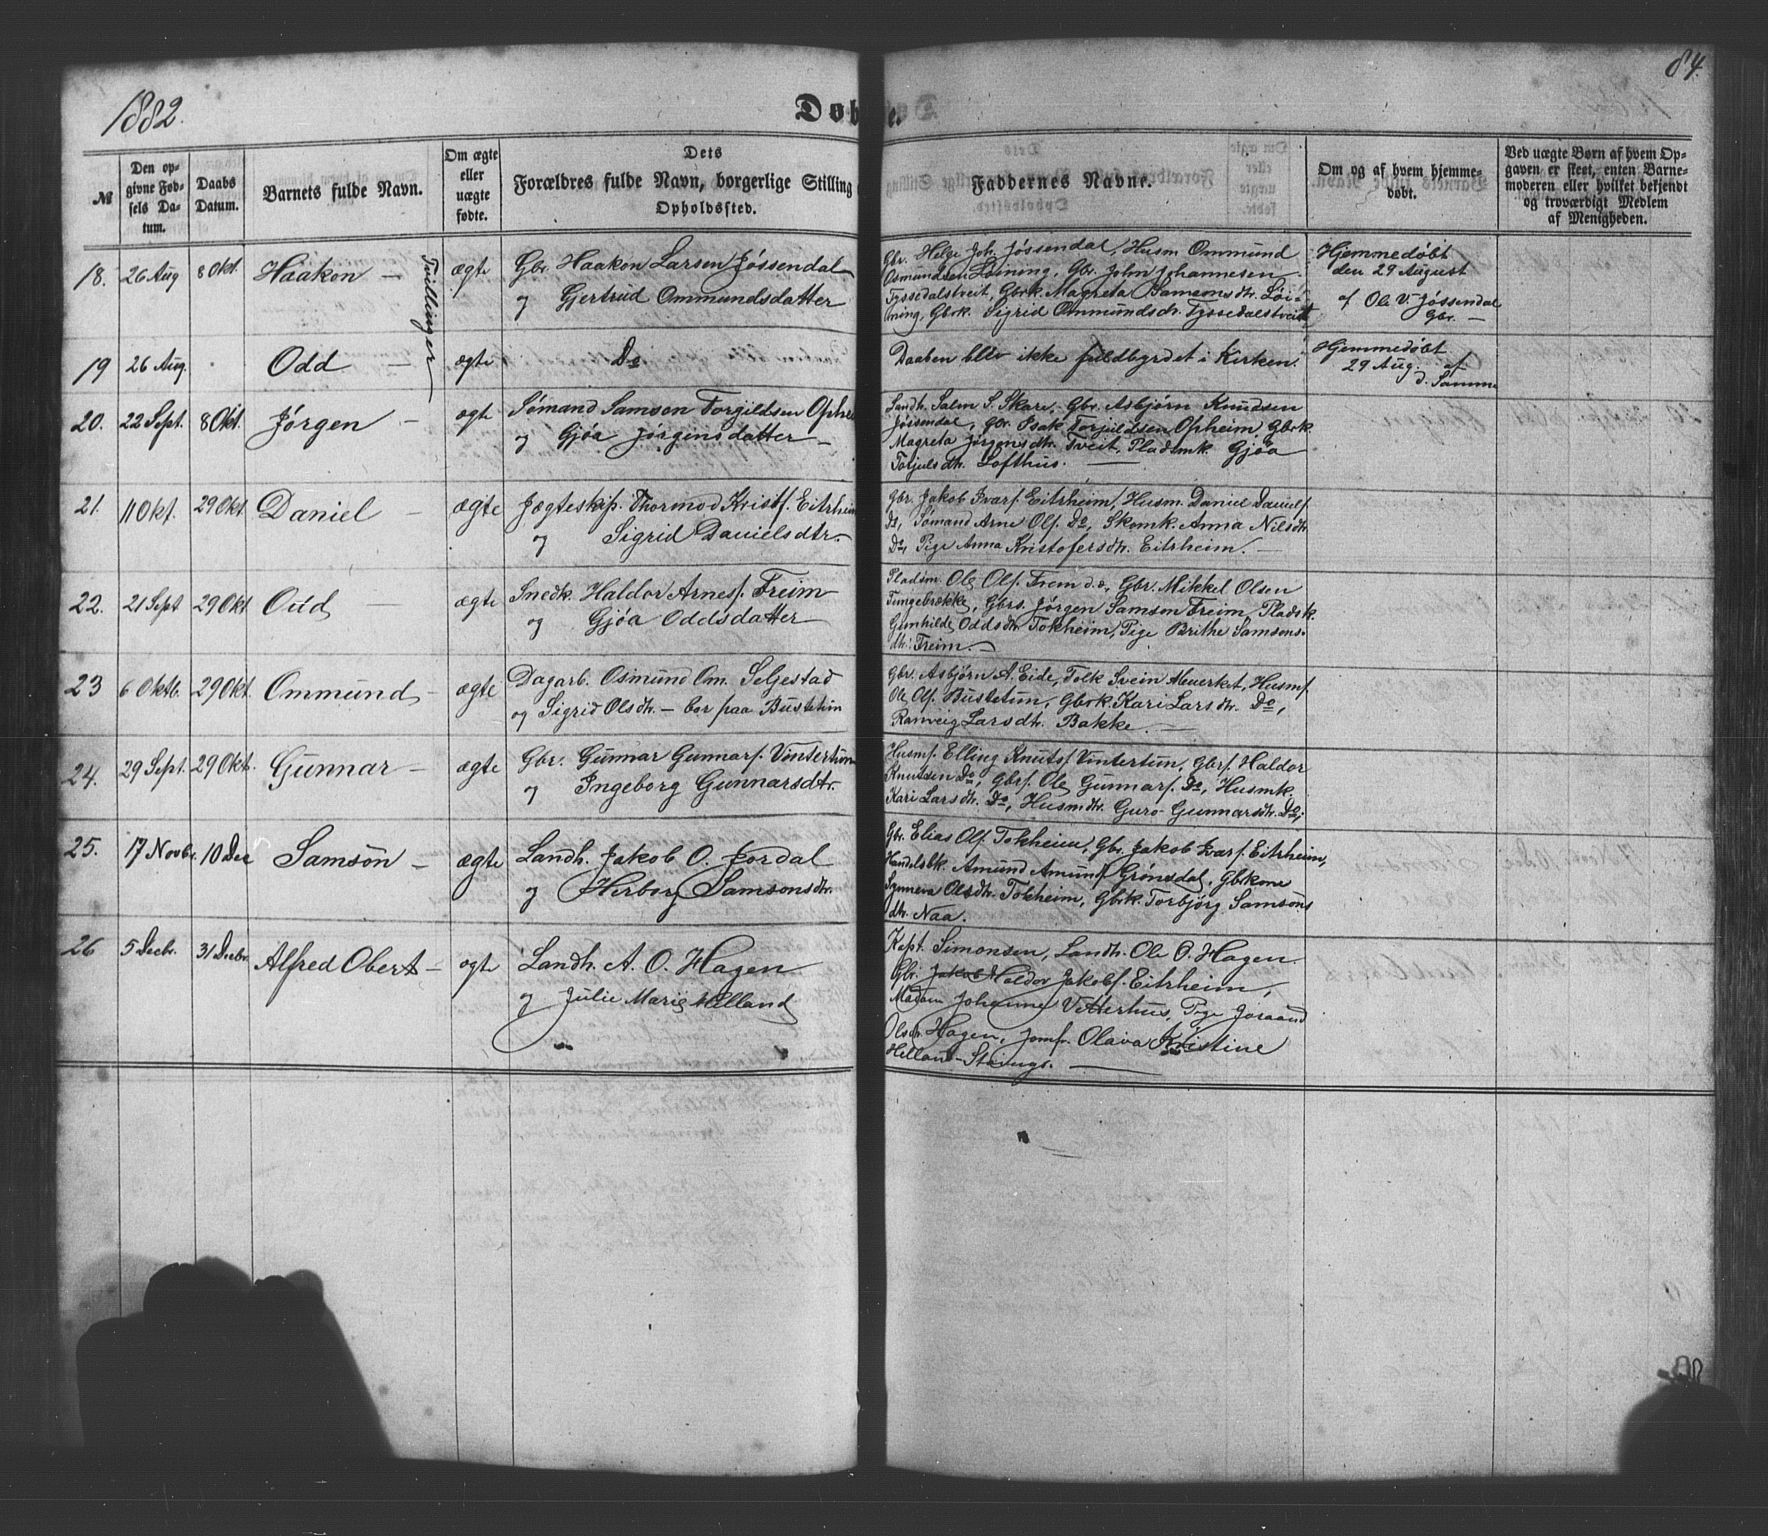 84.
1882.
Døbte.
№
Den opgivne Fødsels Datum.
Daabs Datum.
Barnets fulde Navn.
Om ægte eller uægte fødte.
Dets Forældres fulde Navn, borgerlige Stilling Opholdssted.
Faddernes Navne.
Om og af hvem hjemmedøbt.
Ved uægte Børn af hvem Opgaven er skeet, enten Barnemoderen eller hvilket bekjendt og troværdigt Medlem af Menigheden.
Tvillinger
18. 26 Aug 8 Okt. Haakon — ægte
Gbr. Haakon Larsen Jøssendal
og Gjertrud Ommundsdatter
Gbr. Helge Joh. Jøssendal, Husm Ommund
Osmundsen Løining, Gbr. John Johannesen
Tyssedalstveit, Gbrk. Magreta Samsonsdtr. Løi-
ning, Gbrk. Sigrid Ommundsdr. Tyssedalstveit
Hjemmedøbt
den 29 August
af Ole V. Jøssendal
Gbr. —
19 26 Aug. Odd — ægte
Do
Daaben blev ikke fuldbyrdet i Kirken.
Hjemmedøbt
29 Aug. af
d. Samme
20. 22 Sept. 8 Okt. Jørgen — ægte
Sømand Samson Torgildsen Ophei
og Gjøa Jørgensdatter —
Landh. Salm S. Skare, Gbr. Asbjørn Knudsen
Jøssendal, Gbr. Isak Torjuldsen Opheim, Gbrk.
Magreta Jørgensdtr. Tveit, Pladsmk. Gjøa
Torjulsdtr. Lofthus. —
21. 11 Okt. 29 Okt. Daniel — ægte
Jægteskip. Thormod Kristf. Eitrheim
og Sigrid Danielsdtr. —
Gbr. Jakob Ivarf. Eitrheim, Husm. Daniel Danielf.
Do, Sømand Arne Olf. Do, Skomk. Anna Nilsdtr.
Do, Pige Anna Kristofersdtr. Eitrheim. —
22. 21 Sept 29 Okt. Odd — ægte
Snedk. Haldor Arnesf. Freim
og Gjøa Oddsdatter
Pladsm. Ole Olf. Freim d.æ, Gbr. Mikkel Olsen
Tungebrække, Gbrs. Jørgen Samson Freim, Pladsk.
Gunhilde Oddsdtr. Tokheim, Pige Brithe Samsons-
dtr. Freim. —
23 6 Oktb. 29 Okt. Ommund — ægte
Dagarb. Osmund Om. Seljestad
og Sigrid Olsdtr. — bor paa Bustetun
Gbr. Asbjørn A. Eide, Tolk Svein Husm.
Ole Olf. Bustetun, Gbrk. Kari Larsdtr. Do,
Ranveig Larsdtr. Bakke. —
24. 29 Sept. 29 Okt. Gunnar — ægte
Gbr. Gunnar Gunnarf. Vintertun
og Ingeborg Gunnarsdtr.
Husmf. Elling Knutsf. Vintertun, Gbrf. Haldor
Knutsen Do, Gbrf. Ole Gunnarf. Do, Husmk.
Kari Larsdtr. Do, Husmdtr. Guro Gunnarsdtr. Do,
25. 17 Novbr. 10 Dec Samson — ægte
Landh. Jakob O. Jordal
og Herborg Samsonsdtr.
Gbr. Elias Olf. Tokheim, Gbr. Jakob Ivarf. Eitrheim,
Handelsbk. Amund Amundf. Grønsdal, Gbrkone
Synneva Olsdtr. Tokheim, Gbrk. Torbjørg Samsons
dtr. Naa.
26 5 Decbr. 31 Decbr. Alfred Obert — ægte
Landh. A. O. Hagen
og Julie Marie Helland
Kapt. Simonsen, Landh. Ole O. Hagen
Gbr. Jakob Haldor Jakobf. Eitrheim,
Madam Johanne Vetterhus, Pige Joraand
Olsdr. Hagen, Jomf. Olava Kristine
Helland-Stavngr. —